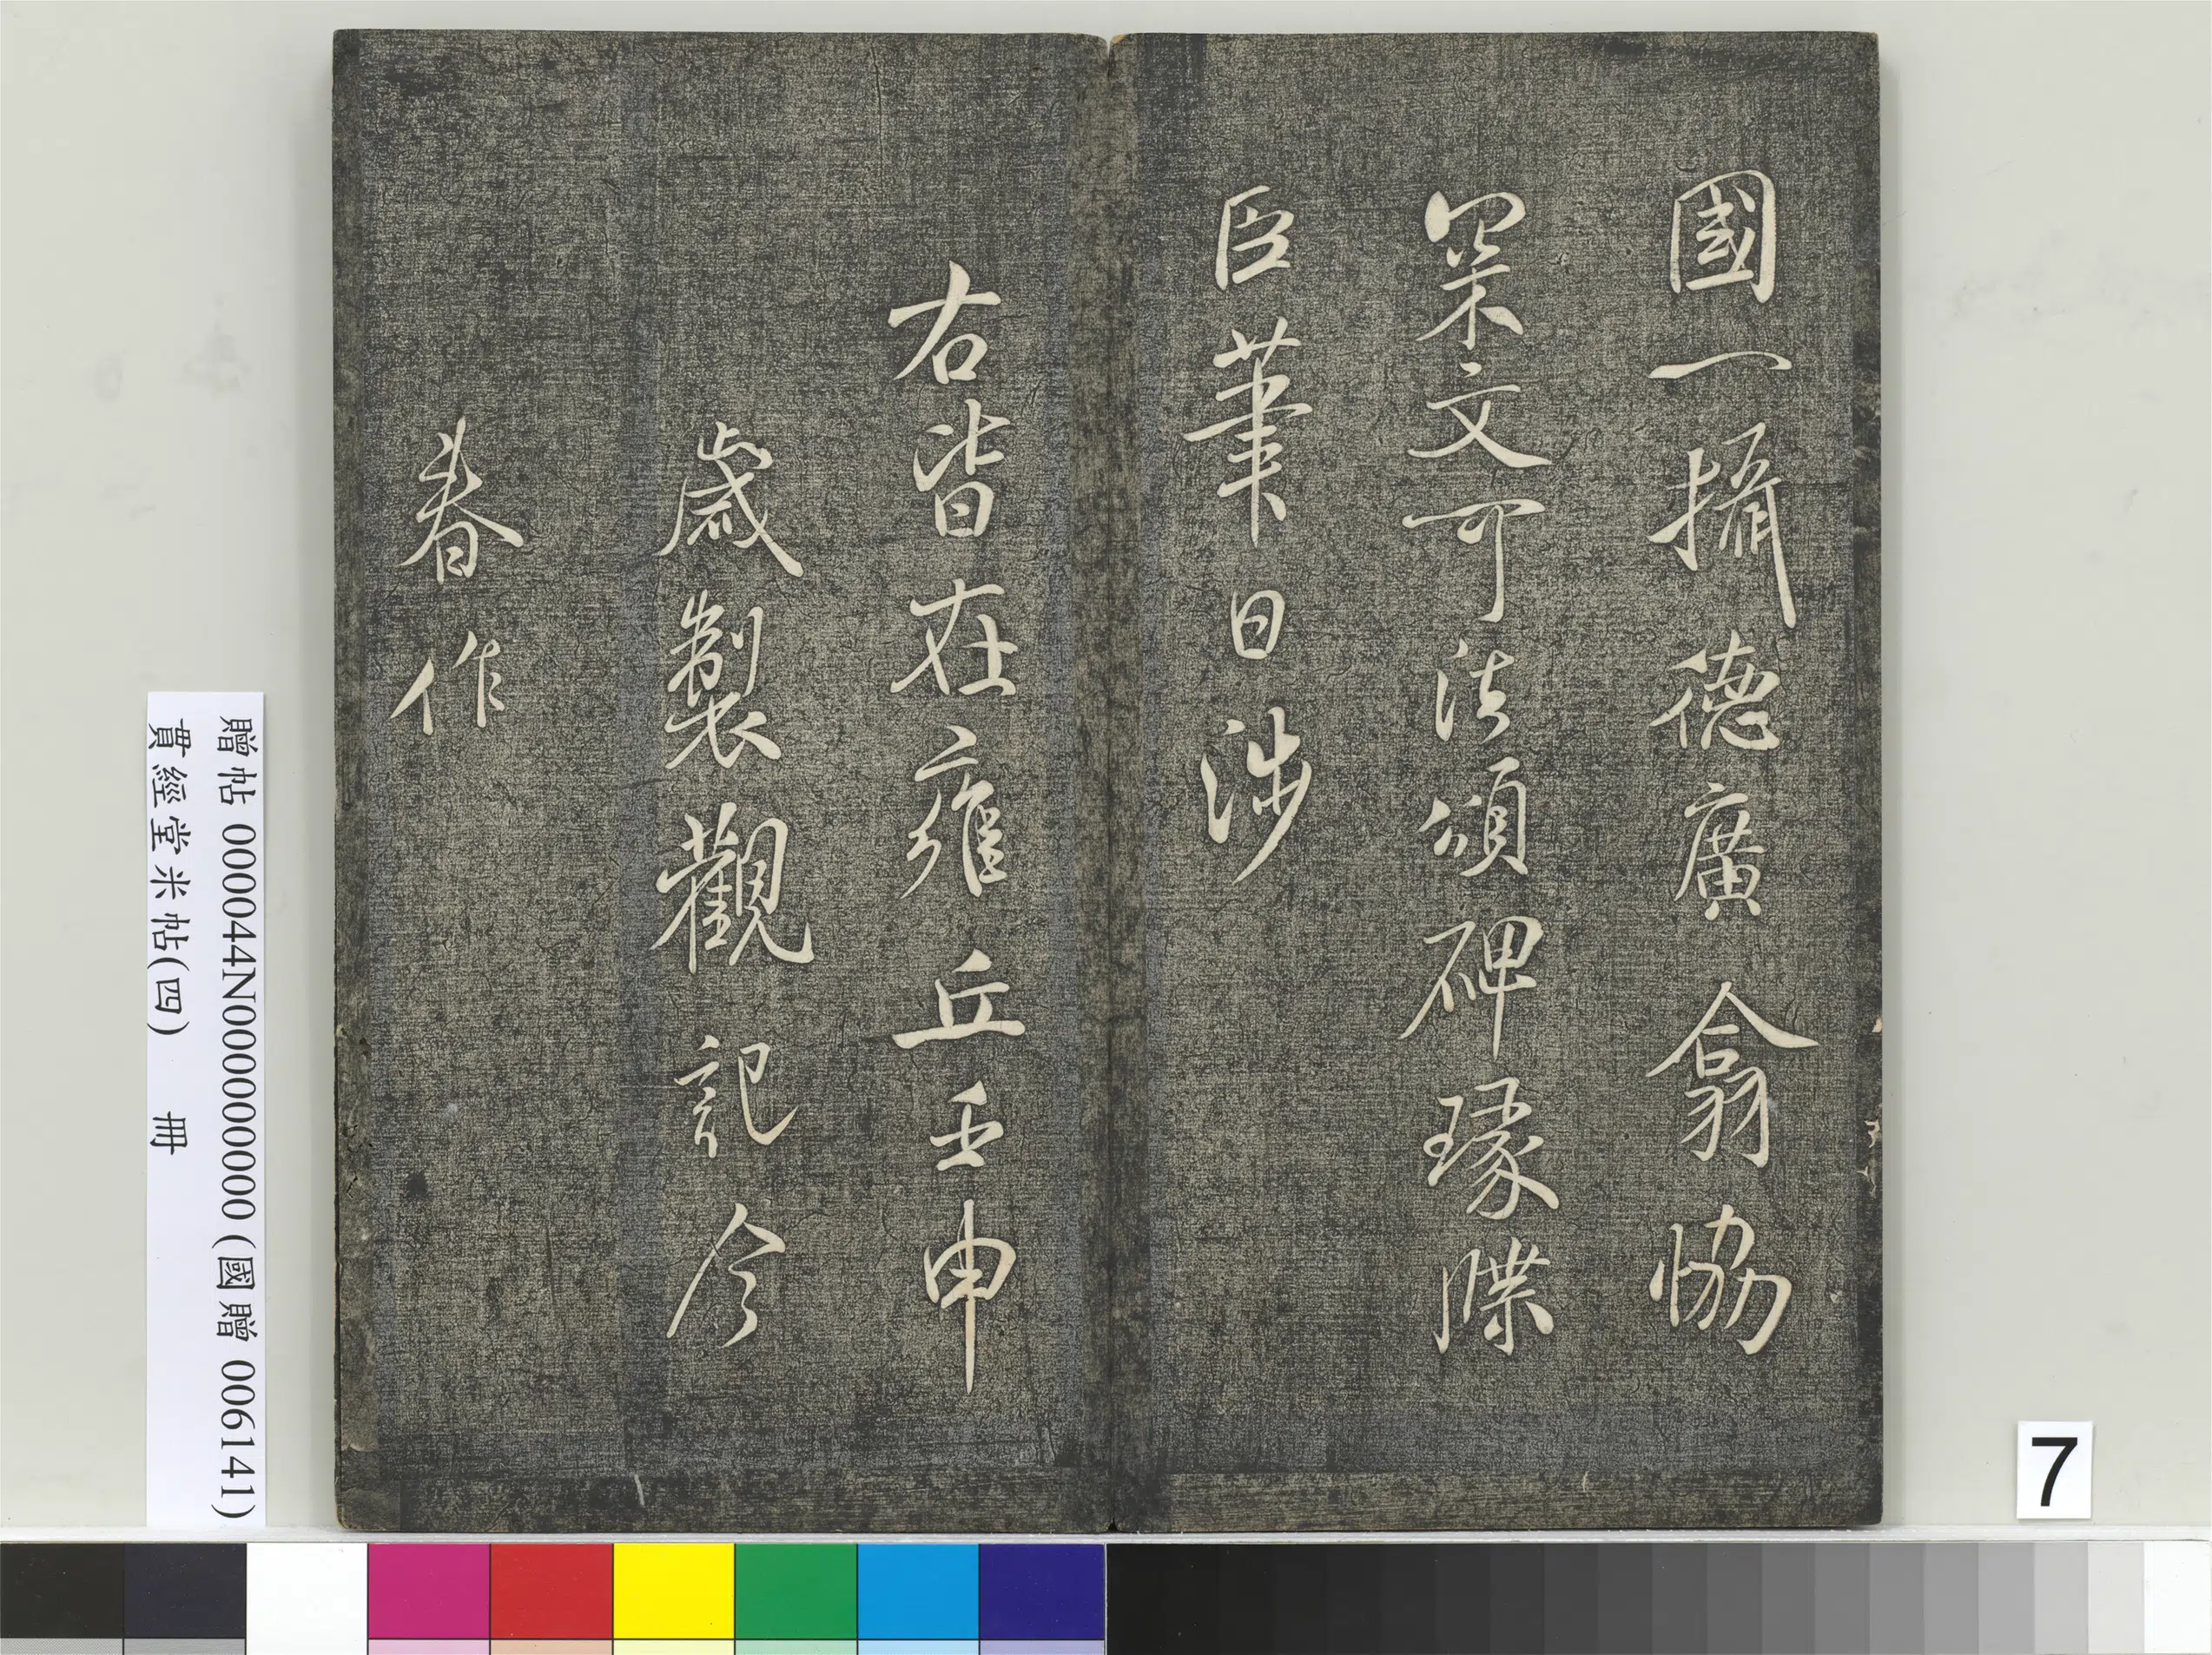 國一攝德廣翕協
罙文可法頌碑瑑牒
臣筆日涉
右皆在雍丘壬申
歲製觀記今
春作
贈帖 000044N000000000 (國贈 006141)
貫經堂米帖(四) 冊
7